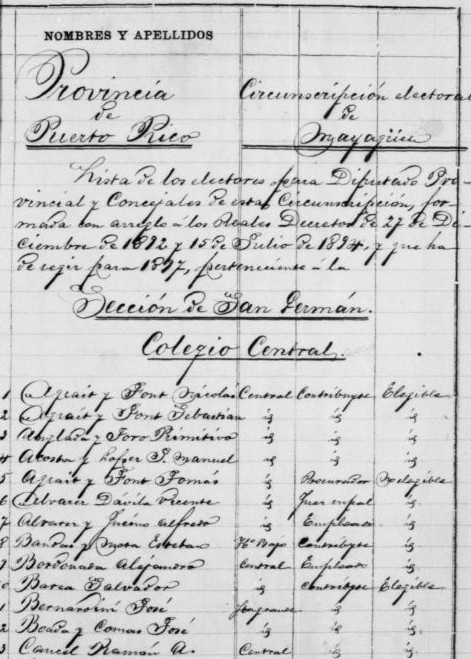 NOMBRES Y APELLIDOS
Provincia Circunscripción electoral
de de
Puerto Rico Mayagüez
Lista de los electores para Diputado Pro-
vincial y Concejales de esta Circunscripción, for-
mada con arreglo á los Reales Decretos de 27 de Di-
ciembre de 1892 y 15 de Julio de 1894, y que ha
de regir para 1897, perteneciente á la
Sección de San Germán.
Colegio Central.
1 Agrait y Font Nicolas Central Contribuyte Elegible
2 Agrait y Font Sebastian id id id
3 Anglada y Toro Primitivo id id id
4 Acosta y J. Manuel id id id
5 Agrait y Font Tomás id Procurador Inelegible
6 Alvarez Dávila Vicente id Juez mpal id
7 Alvarez y Alfredo id Empleado id
8 y Mota Esteban Ho Bajo Contribyte id
9 Bordonada Alejandro Central Empleado id
0 Barea Salvador id Contribyte Elegible
1 Bernardini José id id
2 Boada y Comas José id id id
3 Cancel Ramón A. Central id id